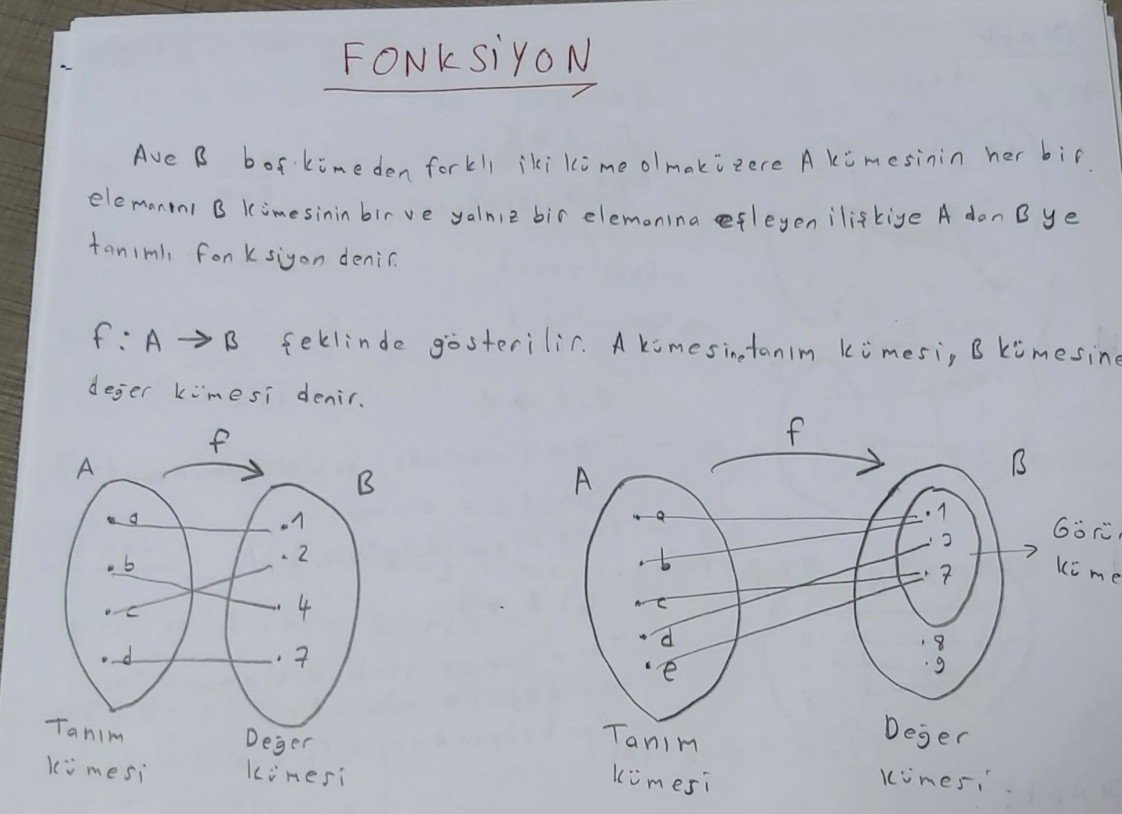 FONKSİYON
A ve B boş kümeden farklı iki küme olmak üzere A kümesinin her bir
elemanını B kümesinin bir ve yalnız bir elemanına eşleyen ilişkiye A dan B ye
tanımlı fonksiyon denir.
f : A → B şeklinde gösterilir. A kümesine tanım kümesi, B kümesine
değer kümesi denir.
f
A
B
a
b
c
d
1
2
4
7
Tanım
kümesi
Değer
kümesi
f
A
B
a
b
c
d
e
1
7
8
9
Tanım
kümesi
Değer
kümesi